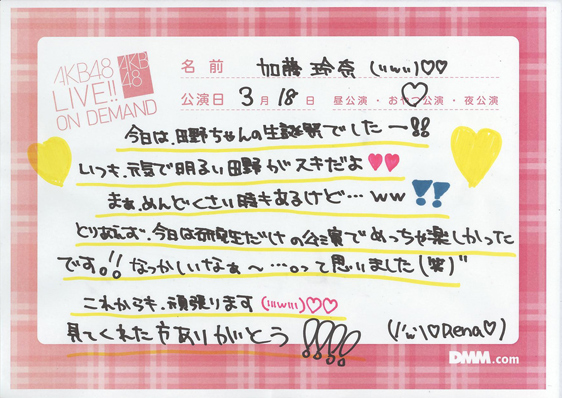 AKB48
LIVE!!
ON DEMAND
AKB
48
名前 加藤 玲奈 (ııwıı)♡♡
公演日 3月18日 昼公演・おやつ公演・夜公演
今日は、田野ちゃんの生誕祭でしたー!!
いつも、元気で明るい田野がスキだよ♥♥
まぁ、めんどくさい時もあるけど…ww!!
とりあえず、今日は研究生だけの公演でめっちゃ楽しかった
です!! なつかしいなぁ〜…。って思いました(笑)"
これからも、頑張ります(ıııwııı)♡♡
見てくれた方ありがとう!!!!
(ı'w'ı♡Rena♡)
DMM.com